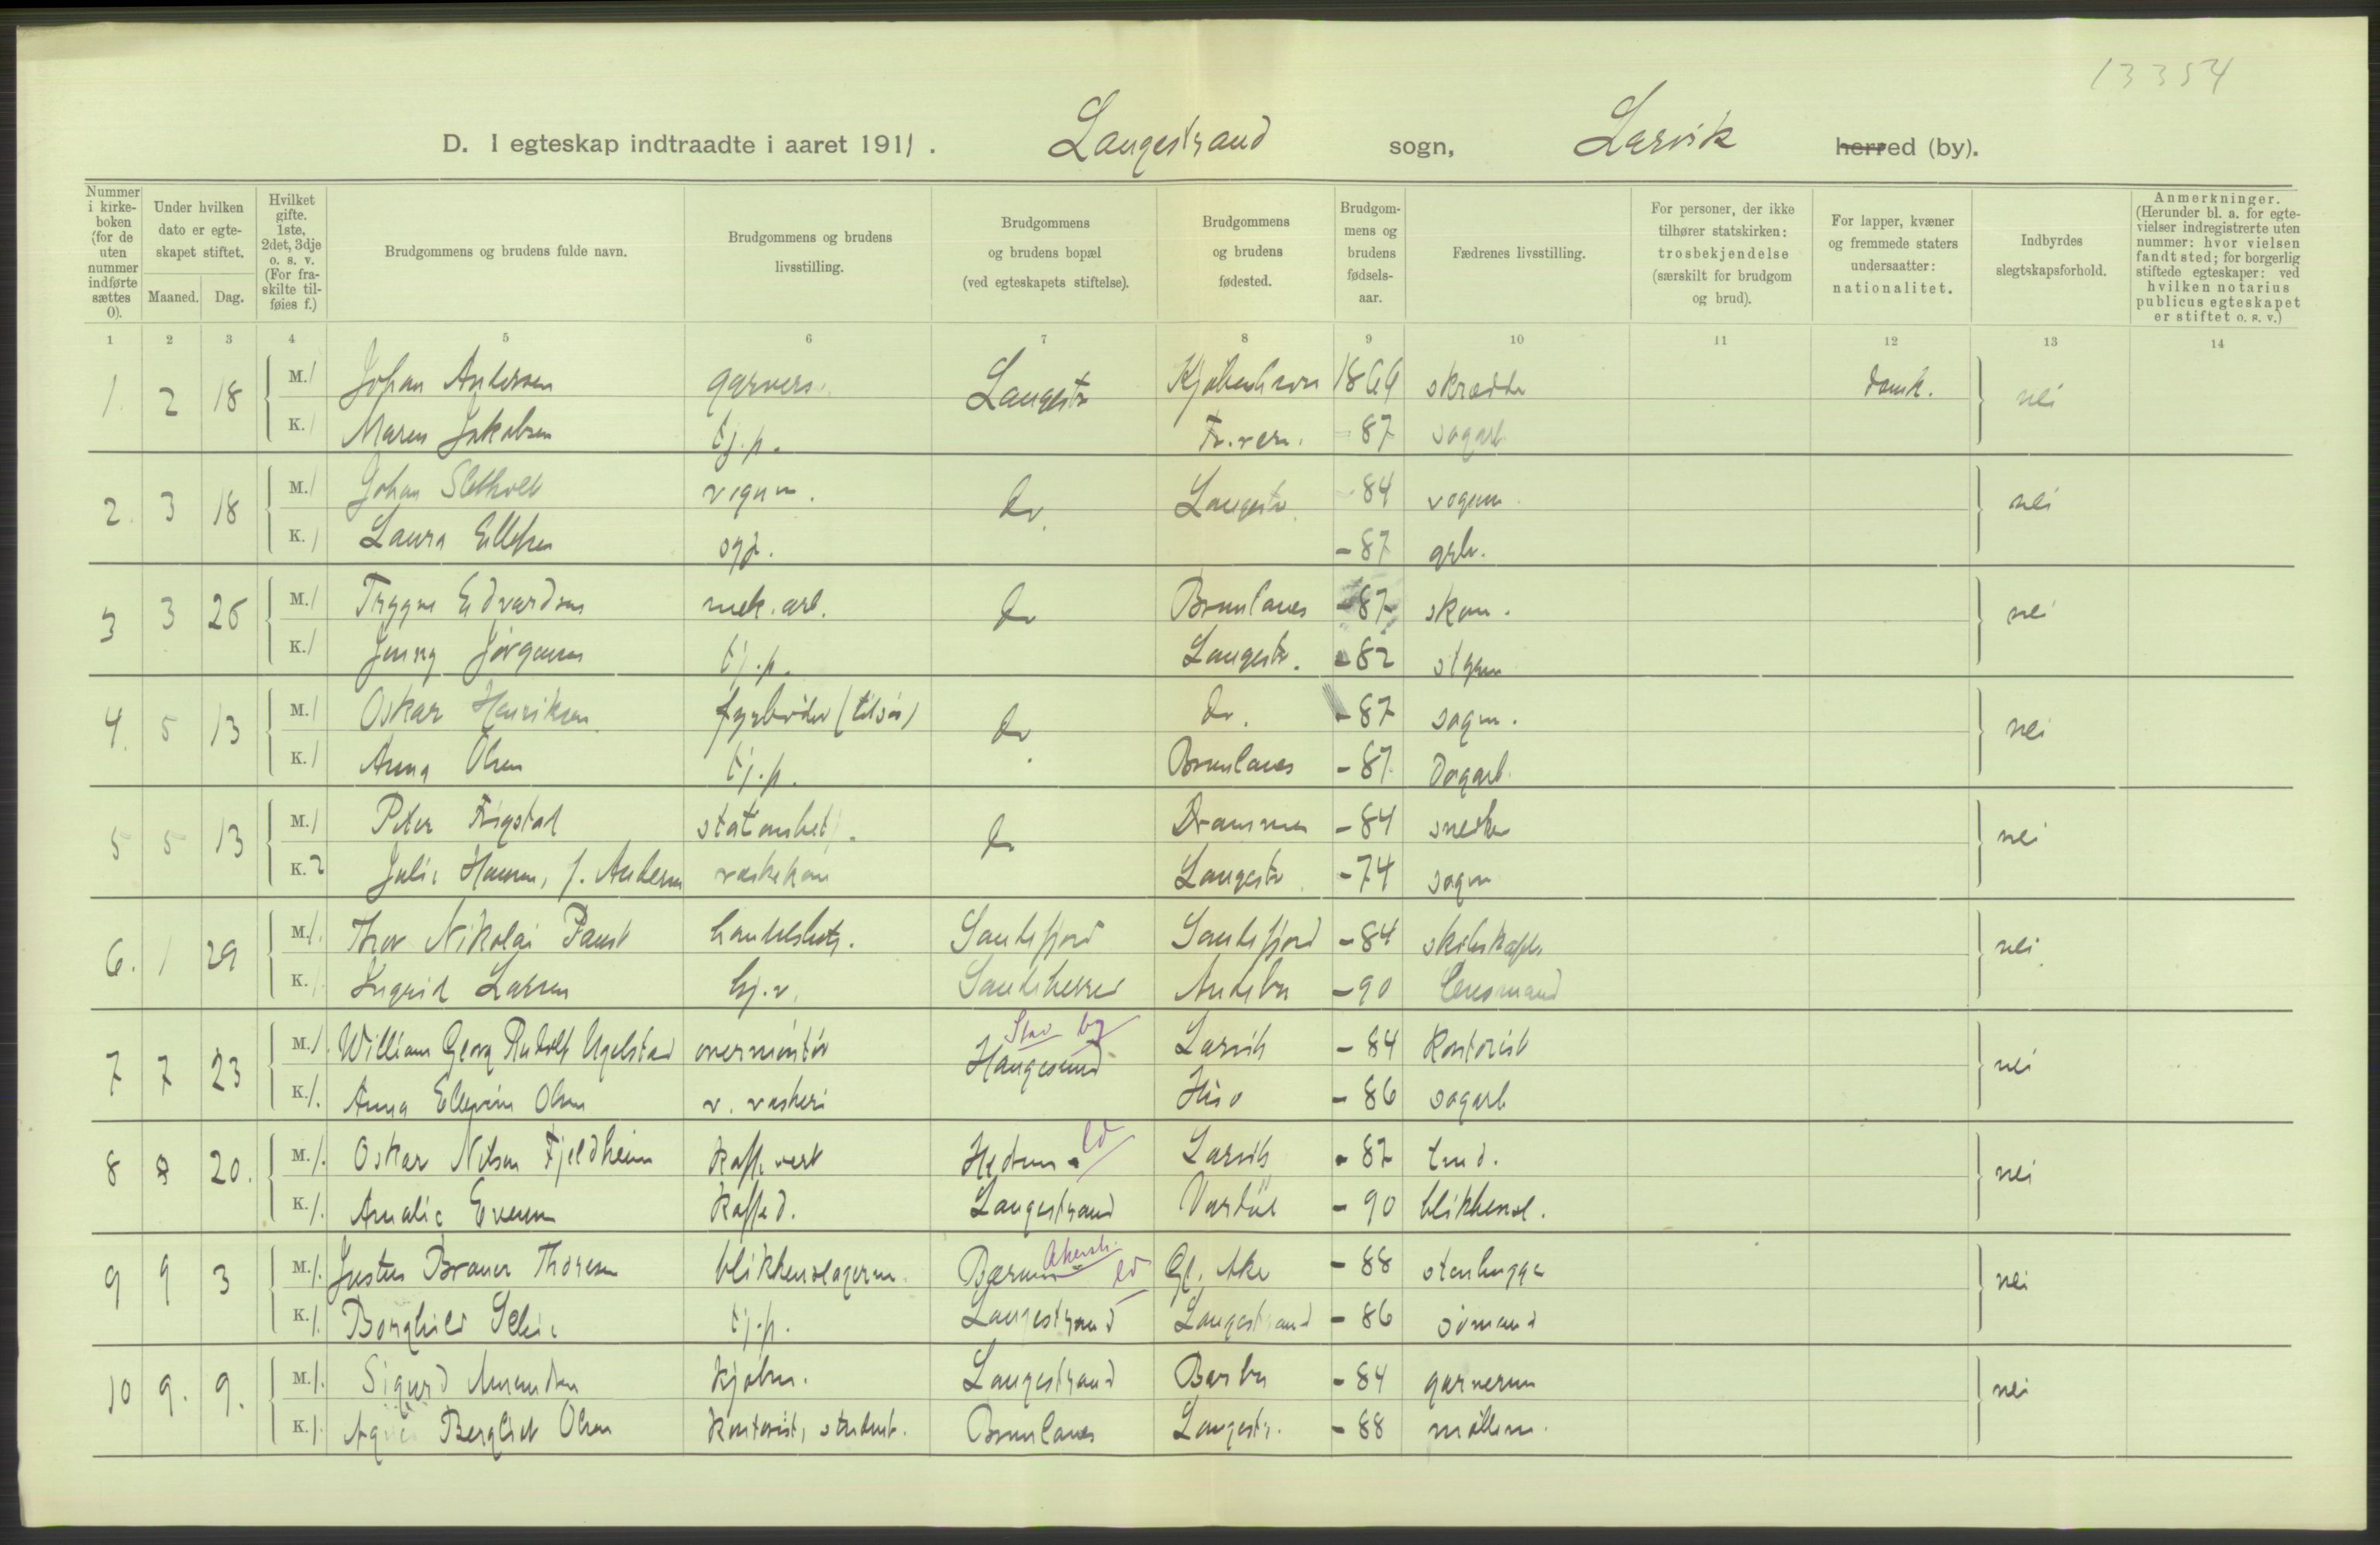 13354
D. I egteskap indtraadte i aaret 1911. Langestrand sogn, Larvik herred (by).
Nummer i kirkeboken (for de uten nummer indførte sættes 0). Under hvilken dato er egteskapet stiftet. Maaned. Dag. Hvilket gifte. 1ste, 2det, 3dje o. s. v. (For fraskilte tilføies f.) Brudgommens og brudens fulde navn. Brudgommens og brudens livsstilling. Brudgommens og brudens bopæl (ved egteskapets stiftelse). Brudgommens og brudens fødested. Brudgommens og brudens fødselsaar. Fædrenes livsstilling. For personer, der ikke tilhører statskirken: trosbekjendelse (særskilt for brudgom og brud). For lapper, kvæner og fremmede staters undersaatter: nationalitet. Indbyrdes slegtskapsforhold. Anmerkninger. (Herunder bl. a. for egtevielser indregistrerte uten nummer: hvor vielsen fandt sted; for borgerlig stiftede egteskaper: ved hvilken notarius publicus egteskapet er stiftet o. s. v.)
1 2 3 4 5 6 7 8 9 10 11 12 13 14
1. 2 18 M. 1 Johan Andersen garvers. Langestr Kjøbenhavn 1866 skrædder dansk. nei
K. 1 Maren Jakobsen tj.p. Fr.vern. - 87 sagarb.
2. 3 18 M. 1 Johan Sletholt vognm. do. Langestr. - 84 vognm. nei
K. 1 Laura Ellefsen syp. - 87 arb.
3 3 26 M. 1 Trygve Edvardsen mek. arb. do Brunlanes - 87 skom. nei
K. 1 Jenny Jørgensen tj.p. Langestr. - 82
4. 5 13 M. 1 Oskar Henriksen fyrbøder (tilsjøs) do. do. - 87 sagm. nei
K. 1 Anna Olsen tj.p. Brunlanes - 87 Dagarb.
5 5 13 M. 1 Peter Frigstad do Drammen - 84 snedker nei
K. 2 Julie Hansen, f. Andersen vaskekone Langestr. - 74 sagm
6. 1 29 M. 1. Thor Nikolai Paust handelsbetj. Sandefjord Sandefjord - 84 skibskapt. nei
K. 1 Ingrid Larsen hj.v. Sandeherred Andebu - 90 lensmand
7 7 23 M. 1. William Georg Rudolf Ugelstad overmontør Stav by Haugesund Larvik - 84 Kontorist nei
K. 1. Anna Elevine Olsen v. vaskeri Hisø - 86 sagarb
8 8 20. M. 1. Oskar Nilsen Fjeldheim Kaffevert Hedrum ld Larvik - 87 nei
K. 1. Amalie Evensen Kaffed. Langestrand - 90 blikkensl.
9 9 3 M. 1. Justus Brauer Thoresen blikkenslagersv. Bærum Akersh. ld Gl. Aker - 88 stenhugger nei
K. 1. Borghild Selie tj.p. Langestrand Langestrand - 86 sømand
10 9. 9. M. 1. Sigurd Amundsen Kjøbm. Langestrand Barbu - 84 garverm nei
K. 1. Agnes Bergliot Olsen Kontorist, student. Brunlanes Langestr. - 88 møllem.